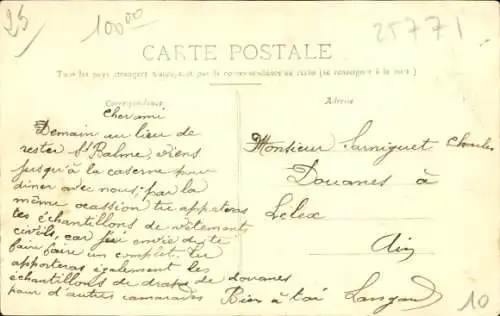 25
100 00
25771
CARTE POSTALE
Tous les pays étrangers n'acceptent pas de correspondance au recto (se renseigner à la poste)
Correspondance
Adresse
Cher ami
Demain au lieu de
rester St Balme, viens
jusqu'à la caserne pour
diner avec nous; par la
même ocassion tu apporteras
tes échantillons de vêtements
civils, car j'ai envie de te
faire faire un complet. Tu
apporteras également les
échantillons de draps de douanes
pour d'autres camarades
Bien à toi
Monsieur Sarniguet Charles
Douanes à
Lélex
Ain
10